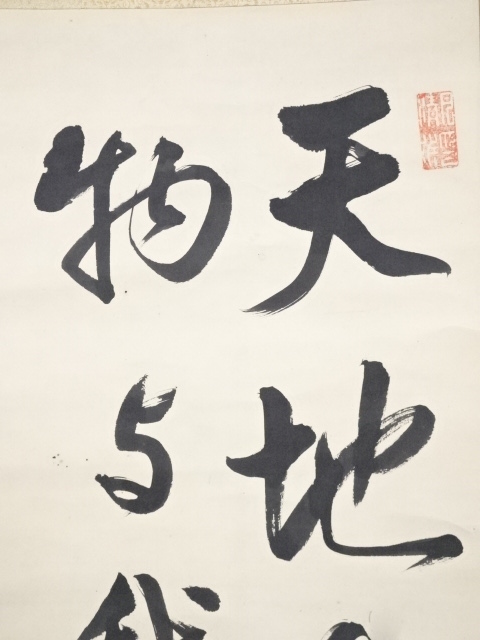 天地
物与我